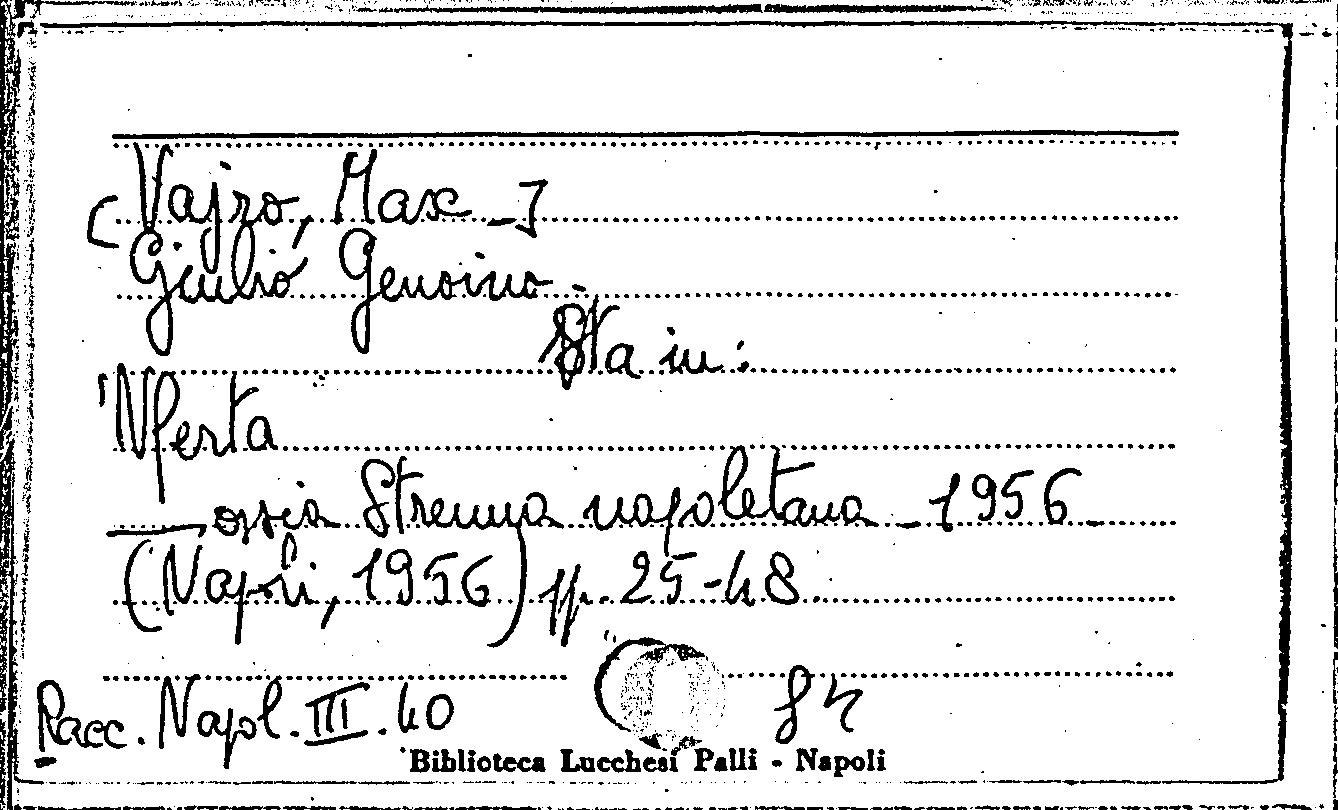 [Vajro, Max -]
Giulio Genoino.
Sta in:
'Nferta
ossia Strenna napoletana - 1956 -
(Napoli, 1956) pp. 25-48.
Racc. Napol. III. 40
Biblioteca Lucchesi Palli - Napoli